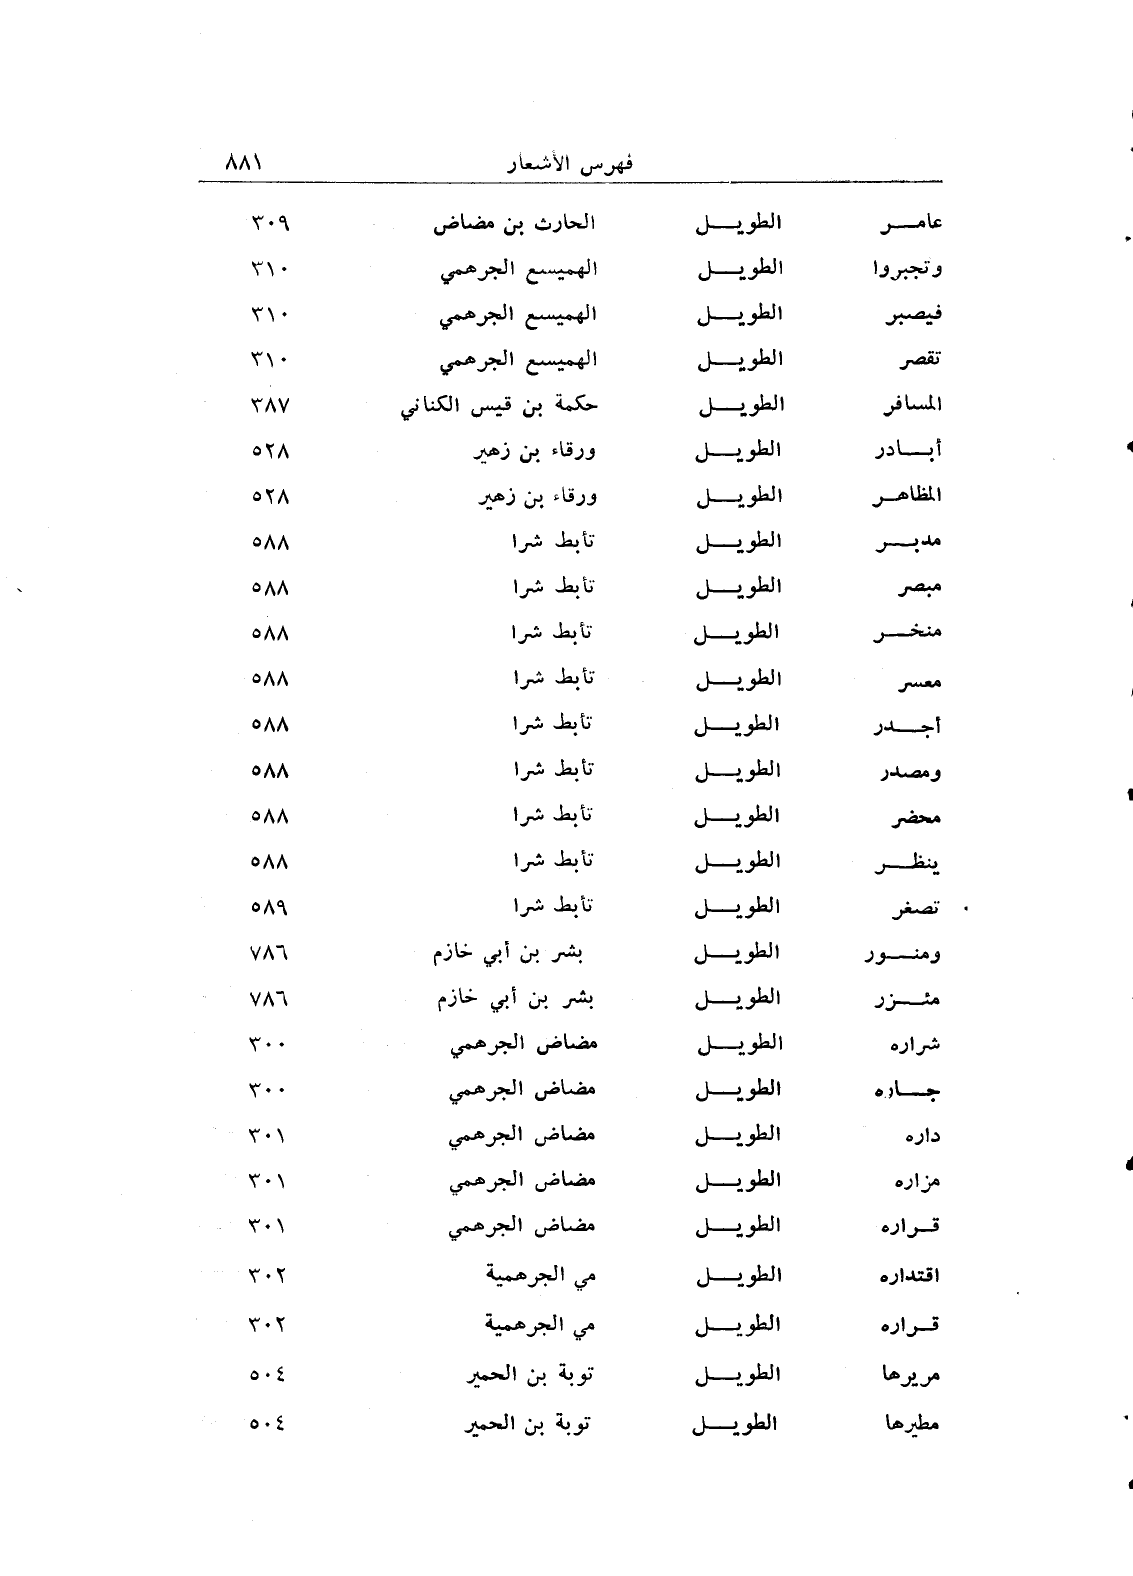 فهرس الأشعار ٨٨١
عامر الطويل الحارث بن مضاض ٣٠٩
وتجبروا الطويل الهميسع الجرهمي ٣١٠
فيصبر الطويل الهميسع الجرهمي ٣١٠
تقصر الطويل الهميسع الجرهمي ٣١٠
المسافر الطويل حكمة بن قيس الكناني ٣٨٧
أبادر الطويل ورقاء بن زهير ٥٢٨
المظاهر الطويل ورقاء بن زهير ٥٢٨
مدبر الطويل تأبط شرا ٥٨٨
مبصر الطويل تأبط شرا ٥٨٨
منخر الطويل تأبط شرا ٥٨٨
معسر الطويل تأبط شرا ٥٨٨
أجدر الطويل تأبط شرا ٥٨٨
ومصدر الطويل تأبط شرا ٥٨٨
محضر الطويل تأبط شرا ٥٨٨
ينظر الطويل تأبط شرا ٥٨٨
تصغر الطويل تأبط شرا ٥٨٩
ومنور الطويل بشر بن أبي خازم ٧٨٦
مئزر الطويل بشر بن أبي خازم ٧٨٦
شراره الطويل مضاض الجرهمي ٣٠٠
جاره الطويل مضاض الجرهمي ٣٠٠
داره الطويل مضاض الجرهمي ٣٠١
مزاره الطويل مضاض الجرهمي ٣٠١
قراره الطويل مضاض الجرهمي ٣٠١
اقتداره الطويل مي الجرهمية ٣٠٢
قراره الطويل مي الجرهمية ٣٠٢
مريرها الطويل توبة بن الحمير ٥٠٤
مطيرها الطويل توبة بن الحمير ٥٠٤